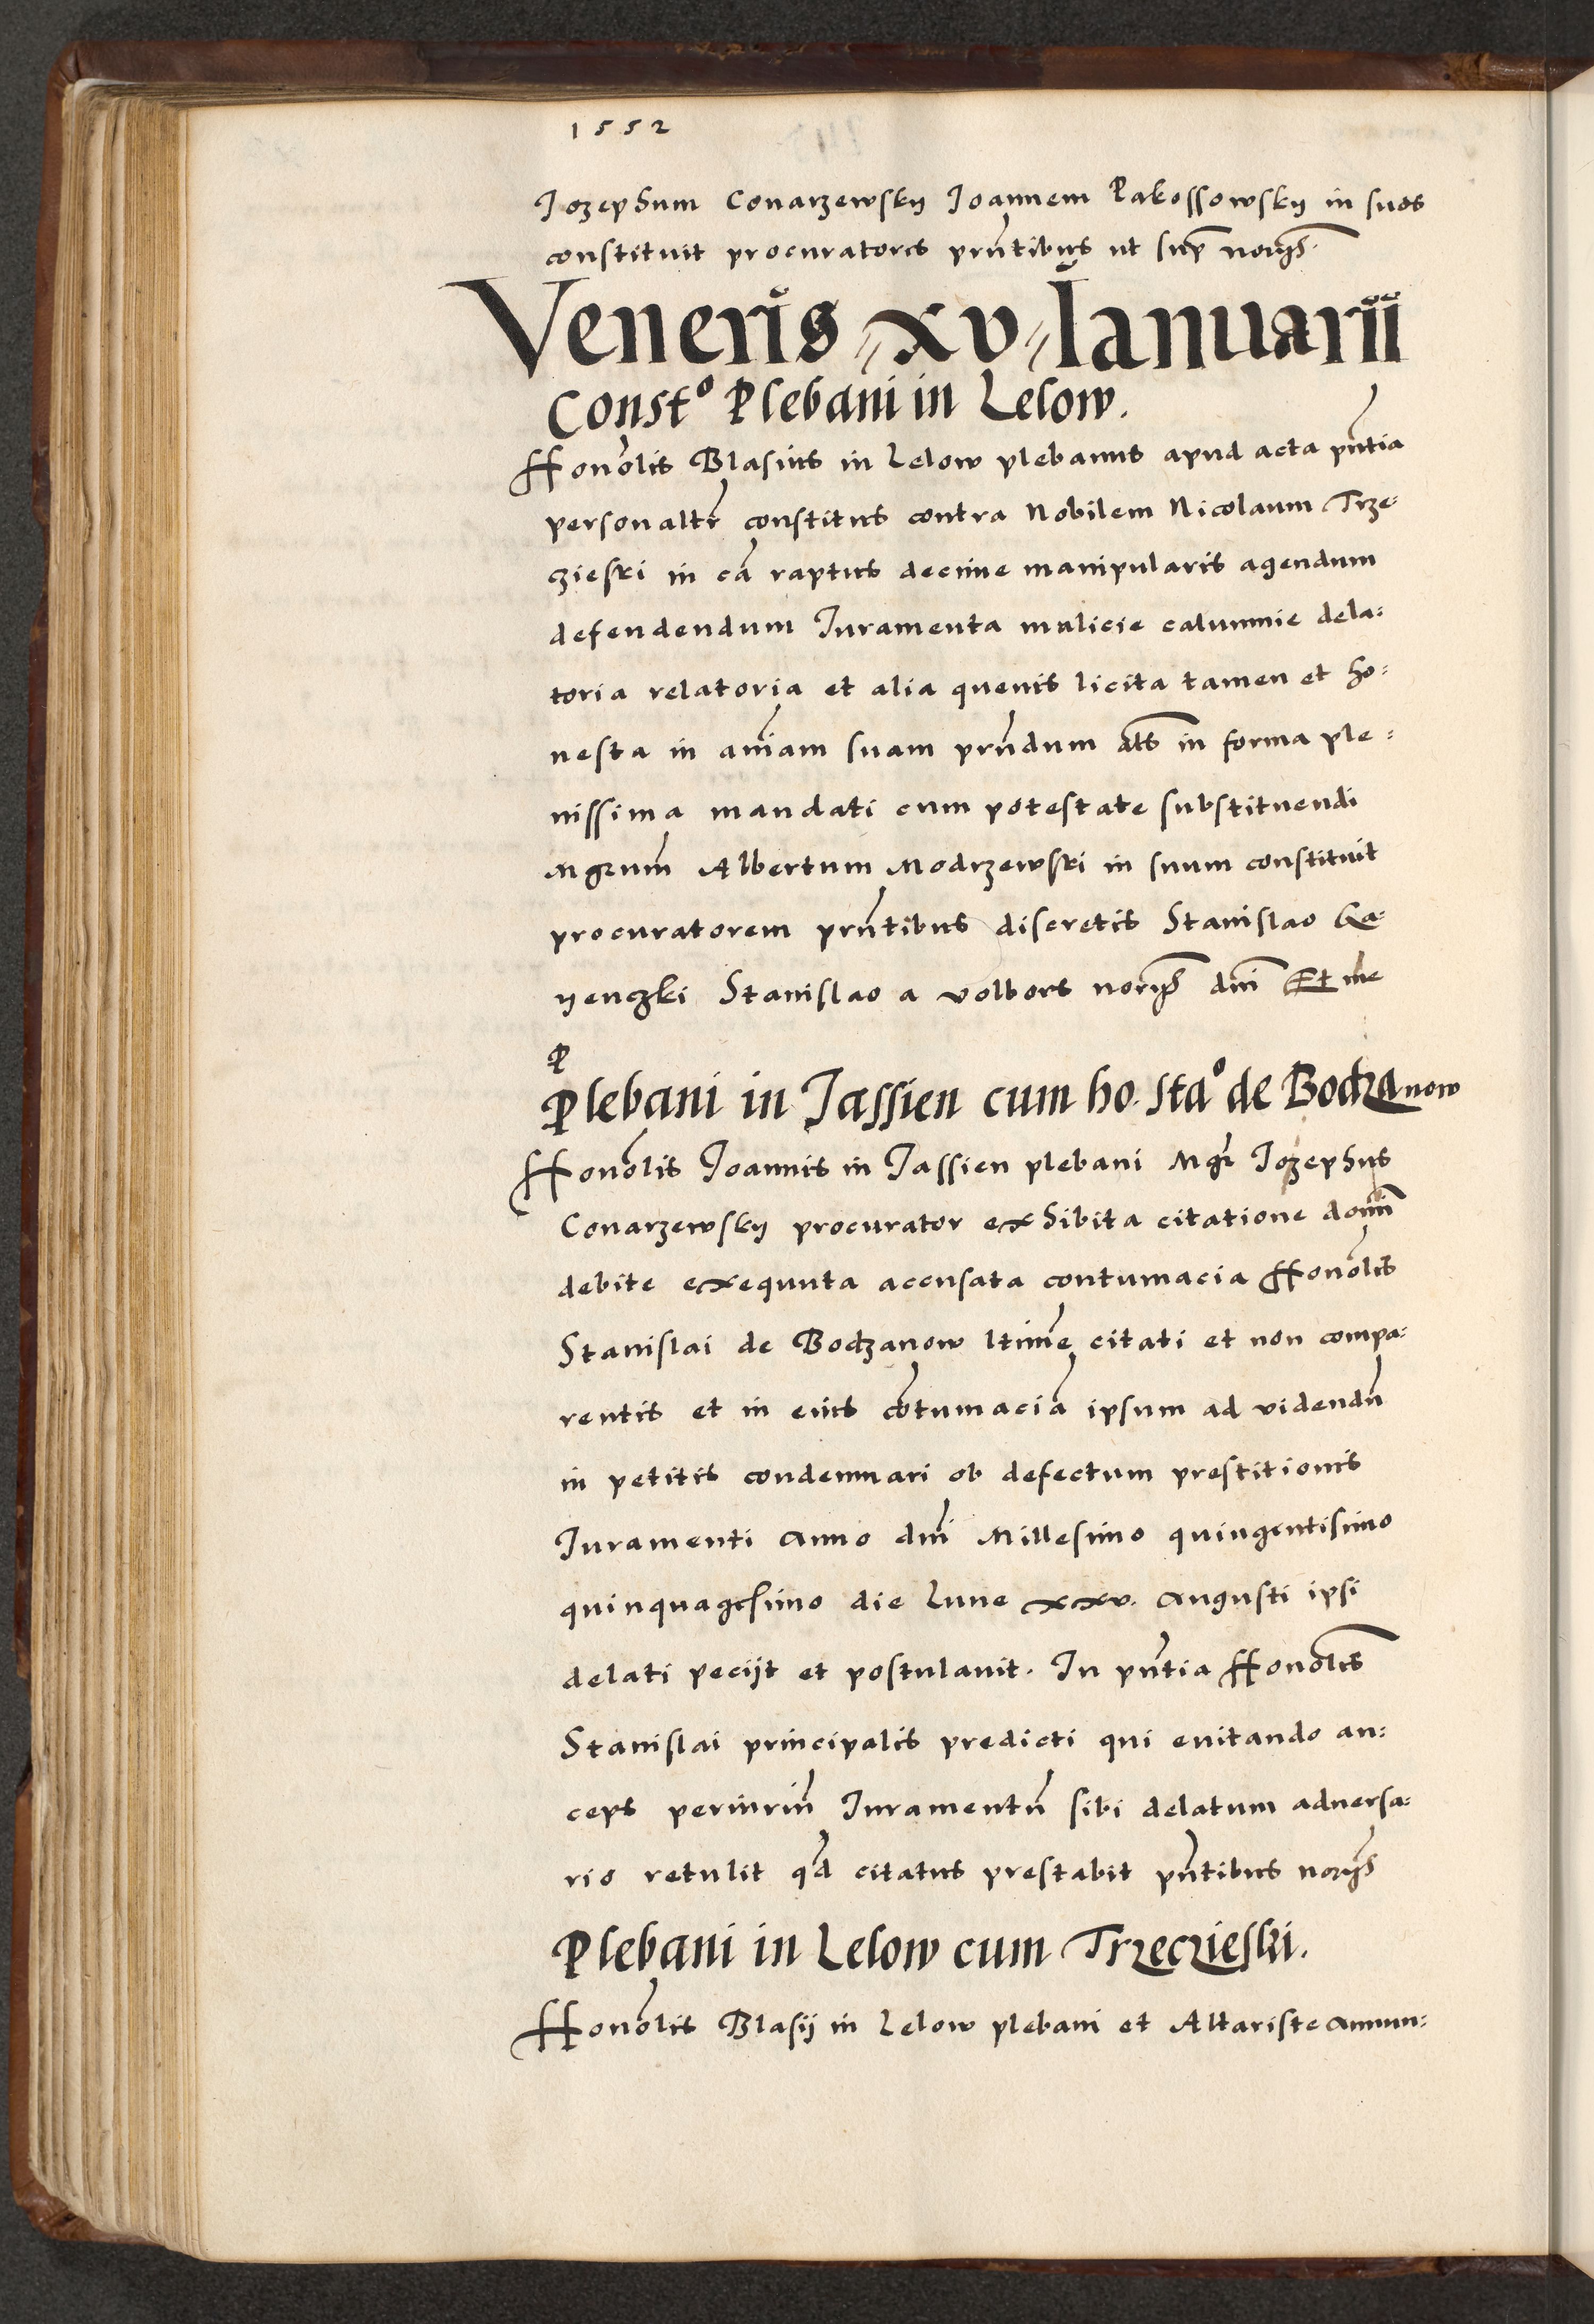 1552
Jozephum Conarzewsky Joannem Rakossowsky in suos
constituit procuratores pñtibus ut sup norijs.
Veneris xv Ianuarii
Const° Plebani in Lelow.
Honolis Blasius in Lelow plebanus apud acta pñtia
personaltr constitus contra Nobilem Nicolaum Trze=
zieski in cã raptus decime manipularis agendum
defendendum Juramenta malicie calumnie dela=
toria relatoria et alia quevis licita tamen et ho=
nesta in aniam suam prñdum als in forma ple=
nissima mandati cum potestate substituendi
Mgrum Albertum Modrzewski in suum constituit
procuratorem prñtibus discretis Stanislao Ga=
yenczki Stanislao a Volbors norijs dni Et me
P
Plebani in Jassien cum ho. sta° de Bodzanow
Honolis Joannis in Jassien plebani Mgr Jozephus
Conarzewsky procurator exhibita citatione domĩ
debite exequuta accusata contumacia Honolis
Stanislai de Bodzanow ltime citati et non compa=
rentis et in eius cõtumaciã ipsum ad videndũ
in petitis condemnari ob defectum prestitionis
Juramenti Anno dni Millesimo quingentisimo
quinquagesimo die Lune xxv. Augusti ipsi
delati peciit et postulavit. In pñtia Honolis
Stanislai principalis predicti qui evitando an=
ceps periuriũ Juramentũ sibi delatum adversa=
rio retulit qd citatus prestabit pñtibus norijs
Plebani in Lelow cum Trzeczieski.
Honolis Blasij in Lelow plebani et Altariste Annun=